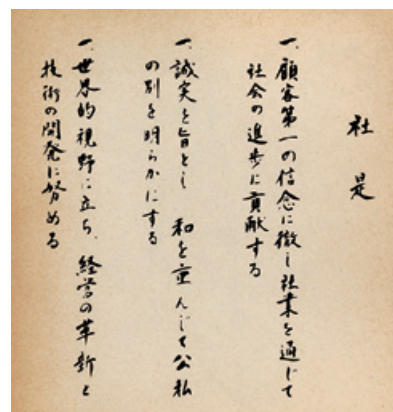 社是
一、顧客第一の信念に徹し社業を通じて
社会の進歩に貢献する
一、誠実を旨とし 和を重んじて公私
の別を明らかにする
一、世界的視野に立ち、経営の革新と
技術の開発に努める